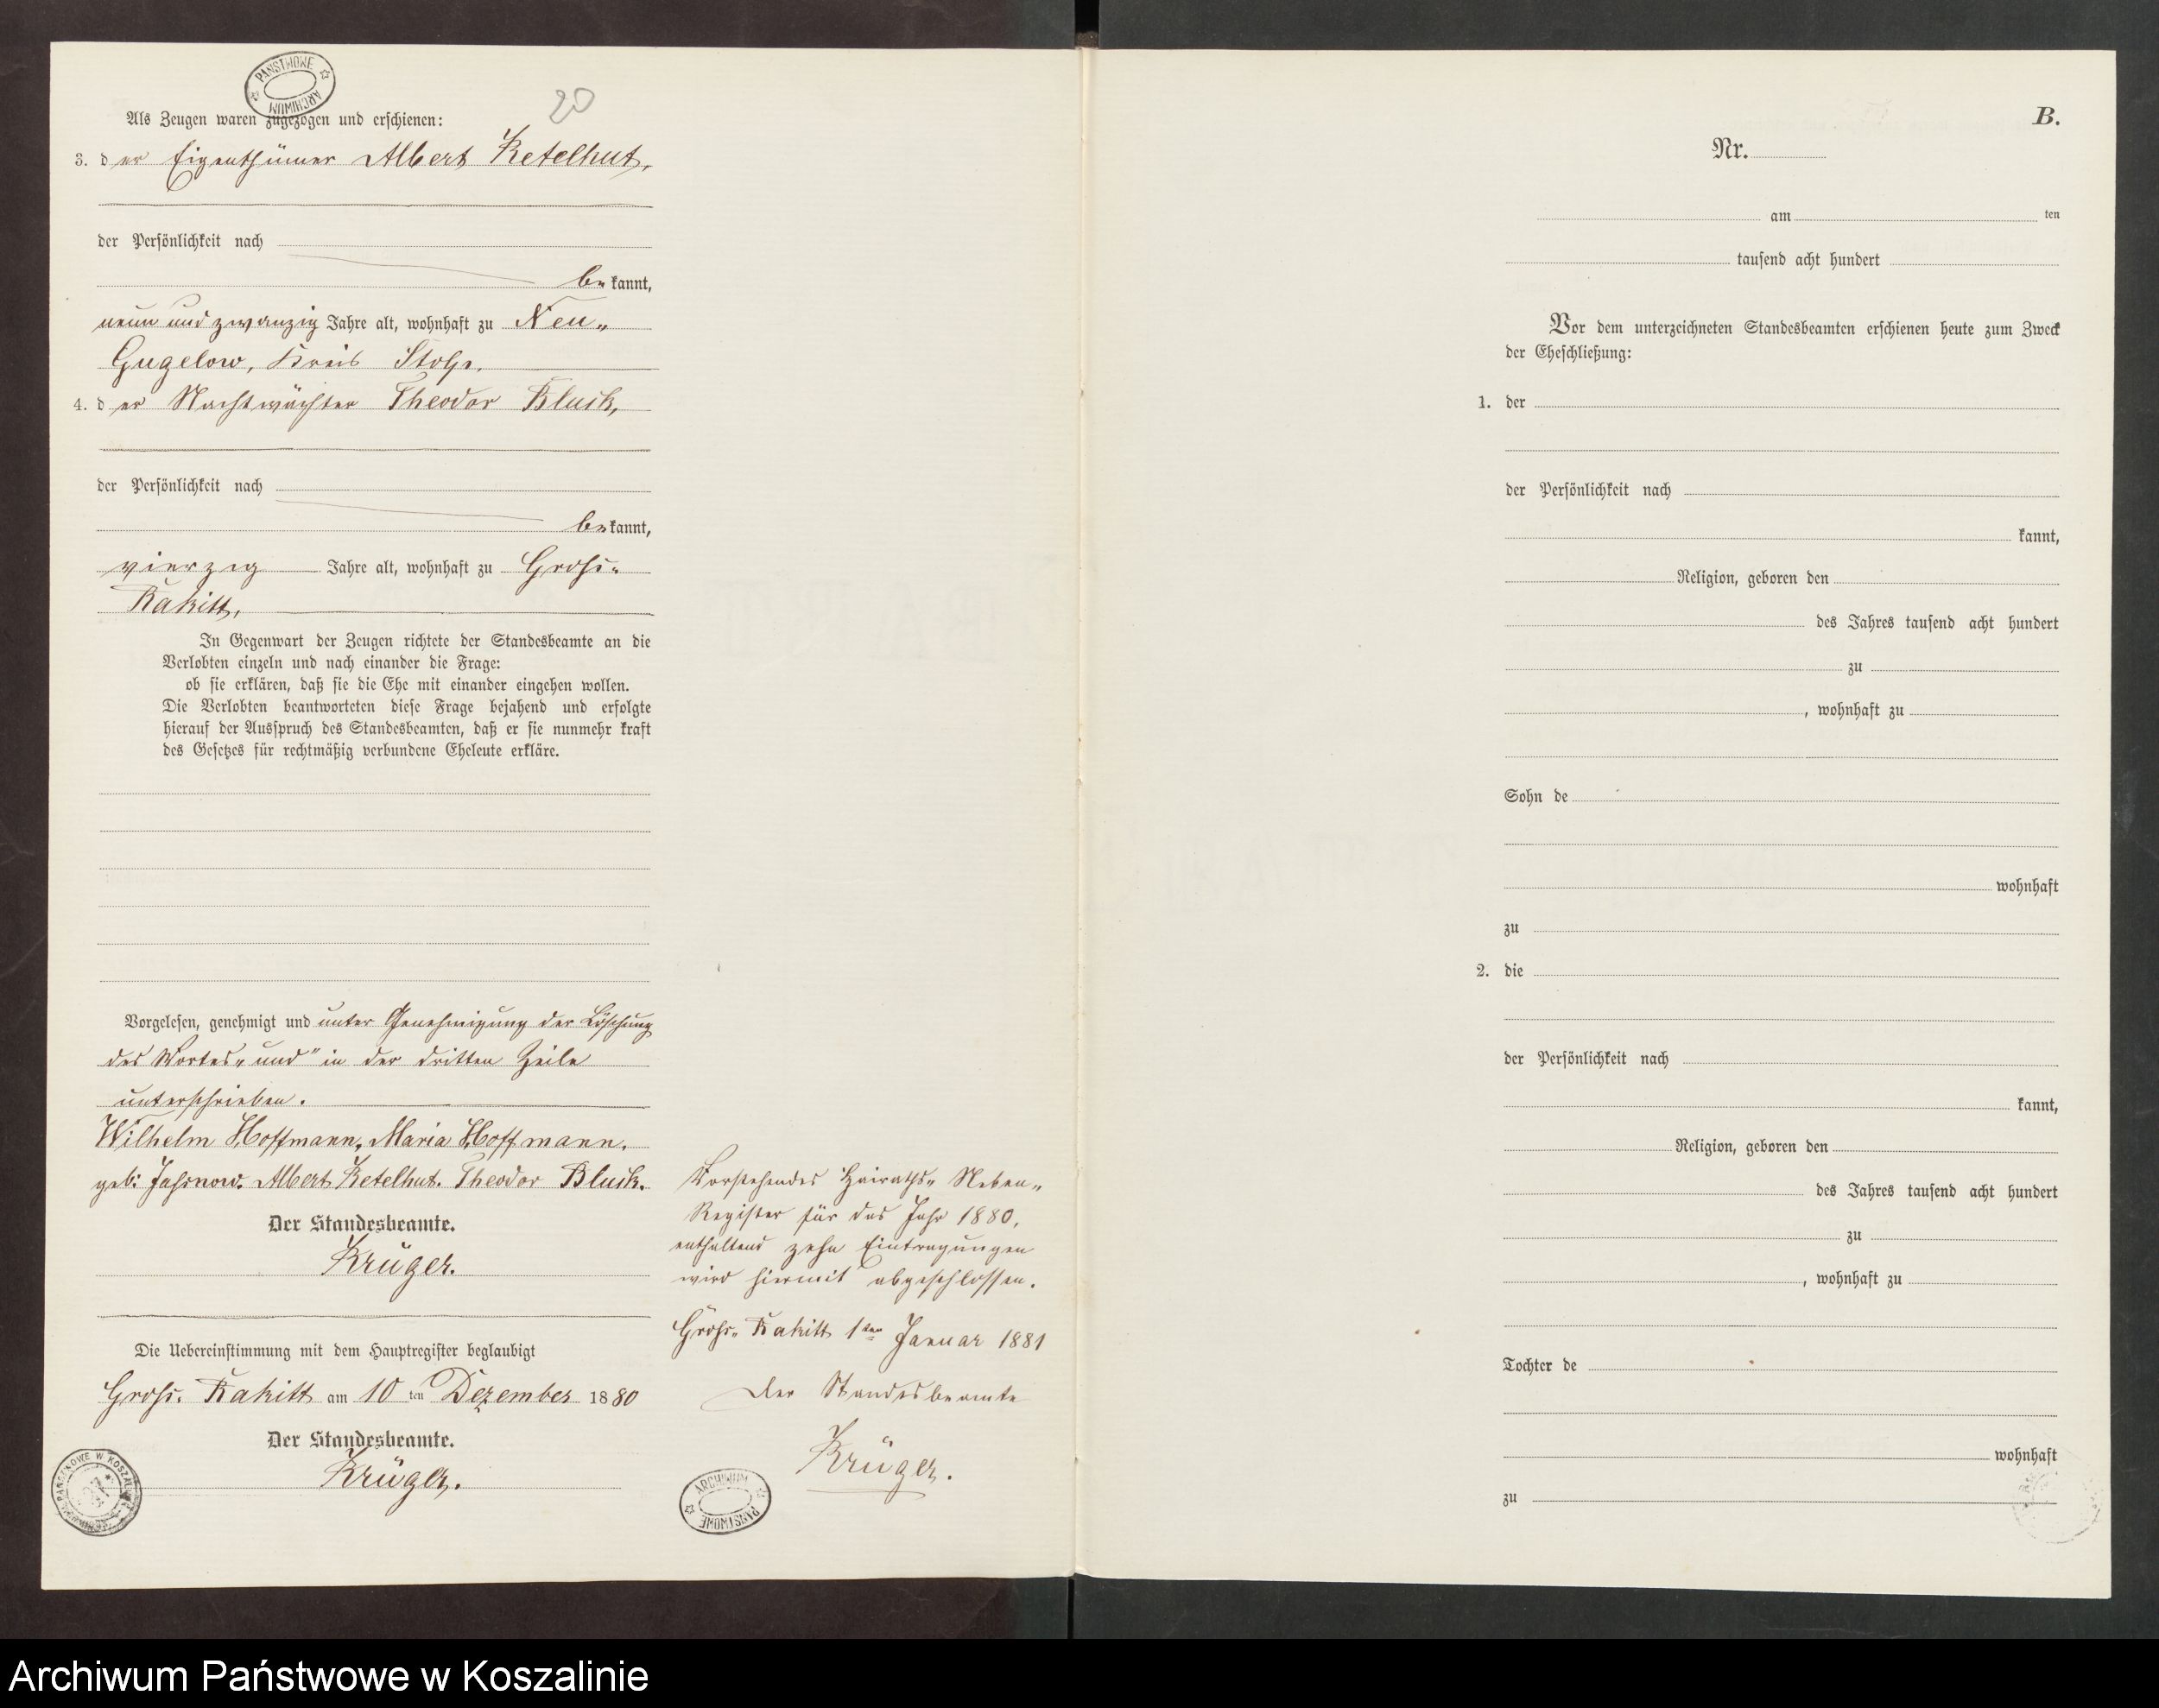 PAŃSTWOWE ARCHIWUM
20
Als Zeugen waren zugezogen und erschienen:
3. der Eigenthümer Albert Ketelhut,
der Persönlichkeit nach
bekannt,
neun und zwanzig Jahre alt, wohnhaft zu Neu-
Gugelow, Kreis Stolp.
4. der Nachtwächter Theodor Bluck,
der Persönlichkeit nach
bekannt,
vierzig Jahre alt, wohnhaft zu Gross-
Rakitt,
In Gegenwart der Zeugen richtete der Standesbeamte an die
Verlobten einzeln und nach einander die Frage:
ob sie erklären, daß sie die Ehe mit einander eingehen wollen.
Die Verlobten beantworteten diese Frage bejahend und erfolgte
hierauf der Ausspruch des Standesbeamten, daß er sie nunmehr kraft
des Gesetzes für rechtmäßig verbundene Eheleute erkläre.
Vorgelesen, genehmigt und unter Genehmigung der Löschung
des Wortes „und" in der dritten Zeile
unterschrieben.
Wilhelm Hoffmann, Maria Hoffmann,
geb: Albert Ketelhut. Theodor Bluck.
Der Standesbeamte.
Krüger.
Die Uebereinstimmung mit dem Hauptregister beglaubigt
Gross- Rakitt am 10ten Dezember 1880
Der Standesbeamte.
Krüger.
Vorstehendes Heiraths- Neben-
Register für das Jahr 1880,
enthaltend zehn Eintragungen
wird hiermit abgeschlossen.
Gross- Rakitt 1ten Januar 1881
Der Standesbeamte
Krüger.
ARCHIWUM PAŃSTWOWE
B.
Nr.
am ten
tausend acht hundert
Vor dem unterzeichneten Standesbeamten erschienen heute zum Zweck
der Eheschließung:
1. der
der Persönlichkeit nach
kannt,
Religion, geboren den
des Jahres tausend acht hundert
zu
, wohnhaft zu
Sohn de
wohnhaft
zu
2. die
der Persönlichkeit nach
kannt,
Religion, geboren den
des Jahres tausend acht hundert
zu
, wohnhaft zu
Tochter de
wohnhaft
zu
Archiwum Państwowe w Koszalinie